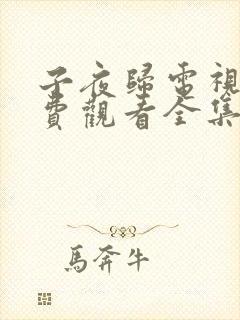 子夜歸電視
費觀看全集
馬奔牛